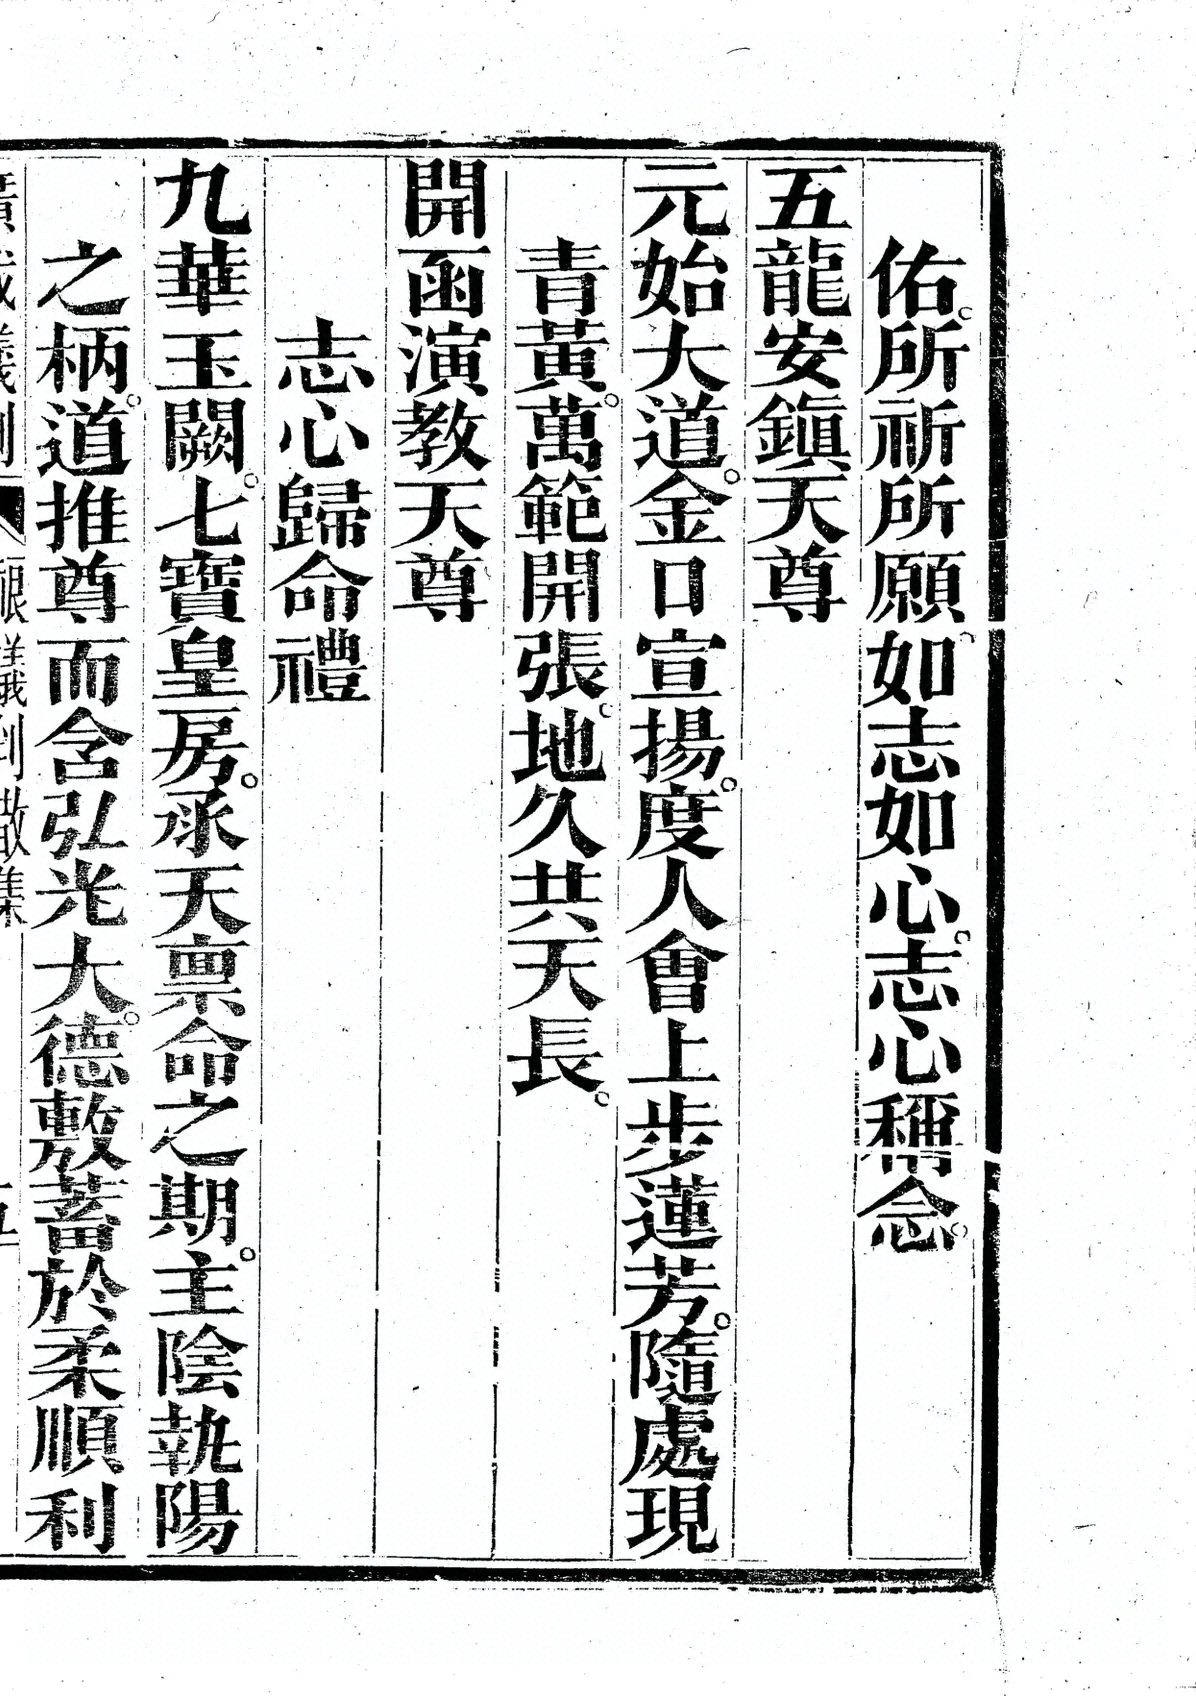 佑。所祈所願。如志如心。志心稱念。
五龍安鎮天尊
元始大道。金口宣揚。度人會上步蓮芳。隨處現
青黃。萬範開張。地久共天長。
開函演教天尊
志心歸命禮
九華玉闕。七寶皇房。承天禀命之期。主陰執陽
之柄。道推尊而含弘光大。德敷蓄於柔順利